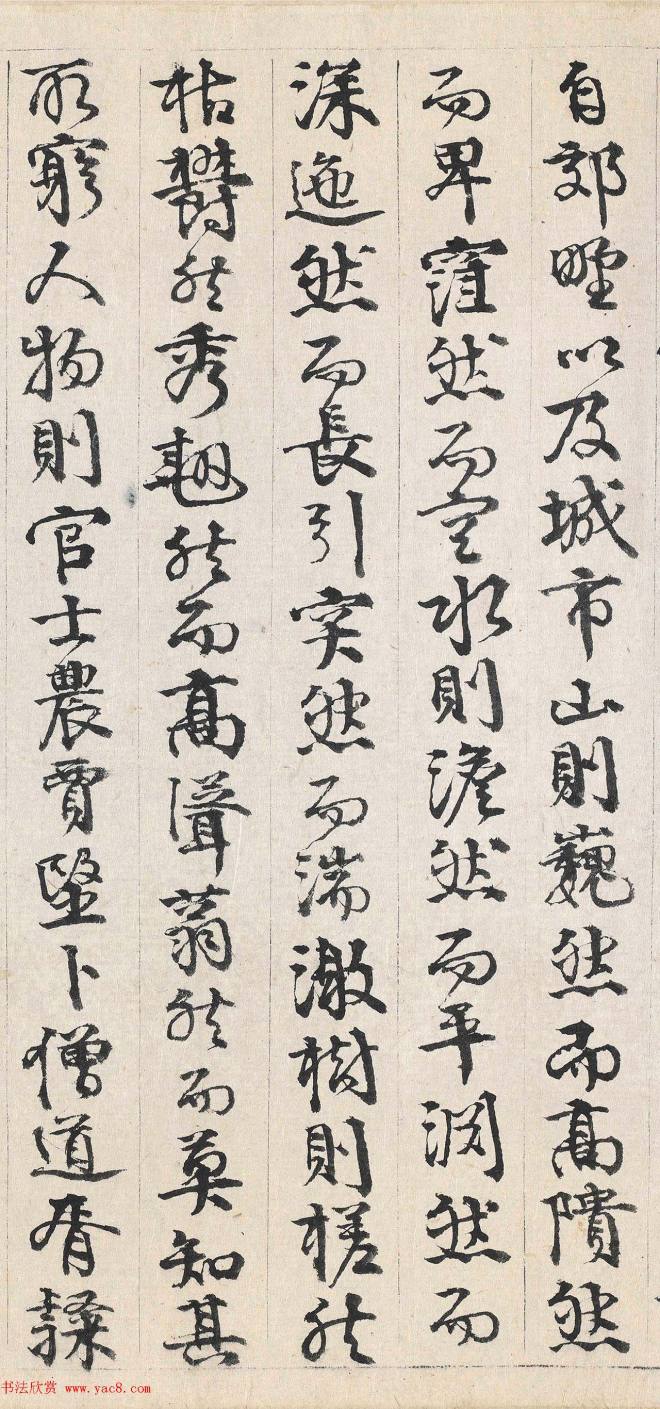 自郊野以及城市山則巍然而高隤然
而卑窪然而空水則澹然而平渊然而
深迤然而長引突然而湍激樹則槎然
枯欝然秀翹然而高聳蓊然而莫知其
所窮人物則官士農賈毉卜僧道胥隸
书法欣赏 www.yac8.com